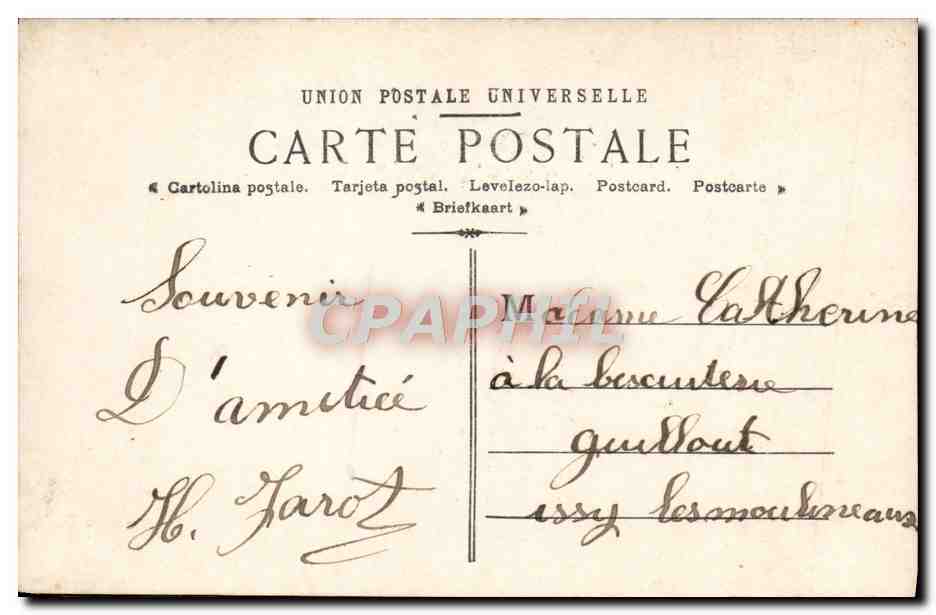 UNION POSTALE UNIVERSELLE
CARTE POSTALE
Cartolina postale. Tarjeta postal. Levelezo-lap. Postcard. Postcarte
Briefkaart
Souvenir
D'amitieé
H. Jarot
Madame Catherine
à la bescuiterie
guillout
issy lesmoulineaux
CPAPHIL